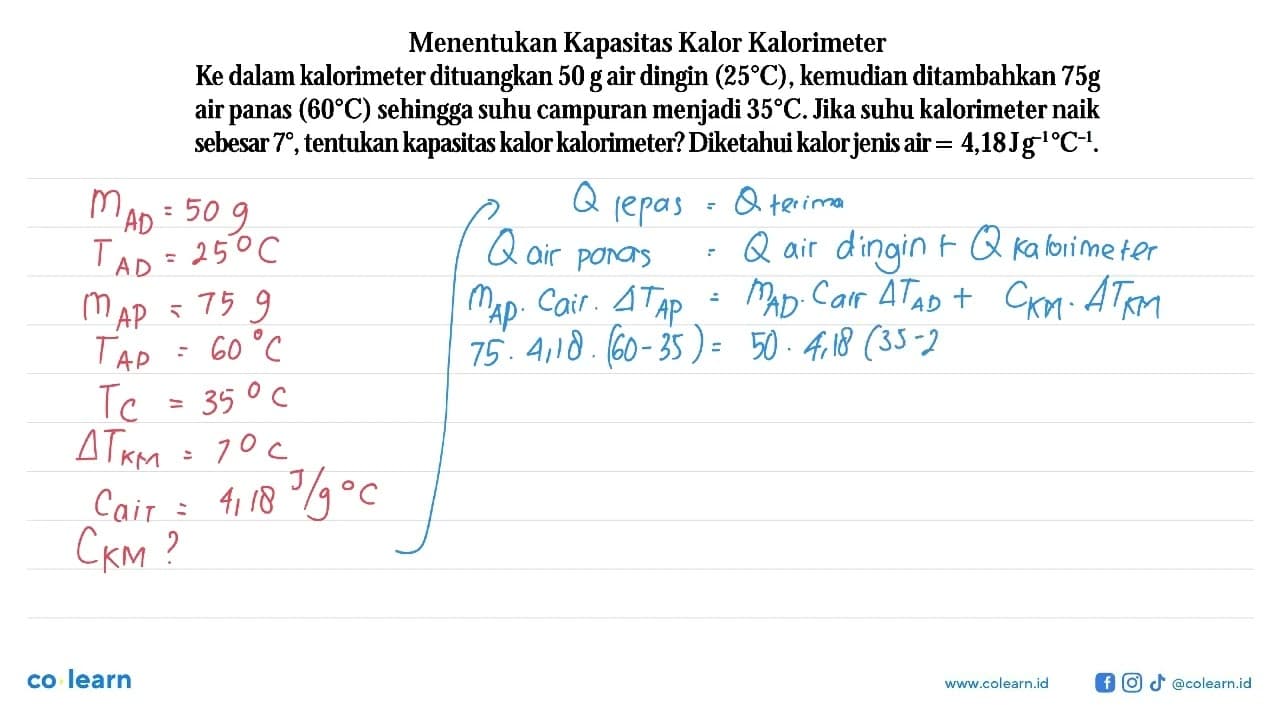 Menentukan Kapasitas Kalor Kalorimeter
Ke dalam kalorimeter dituangkan 50 g air dingin (25°C), kemudian ditambahkan 75g
air panas (60°C) sehingga suhu campuran menjadi 35°C. Jika suhu kalorimeter naik
sebesar 7°, tentukan kapasitas kalor kalorimeter? Diketahui kalor jenis air = 4,18 J g⁻¹°C⁻¹.
m_AD = 50 g
T_AD = 25°C
m_AP = 75 g
T_AP = 60°C
T_C = 35°C
ΔT_KM = 7°C
C_air = 4,18 J/g°C
C_KM ?
Q lepas = Q terima
Q air panas = Q air dingin + Q kalorimeter
m_AP . C air . ΔT_AP = m_AD . C air ΔT_AD + C_KM . ΔT_KM
75 . 4,18 . (60 - 35) = 50 . 4,18 (35 - 2
co learn
www.colearn.id
@colearn.id